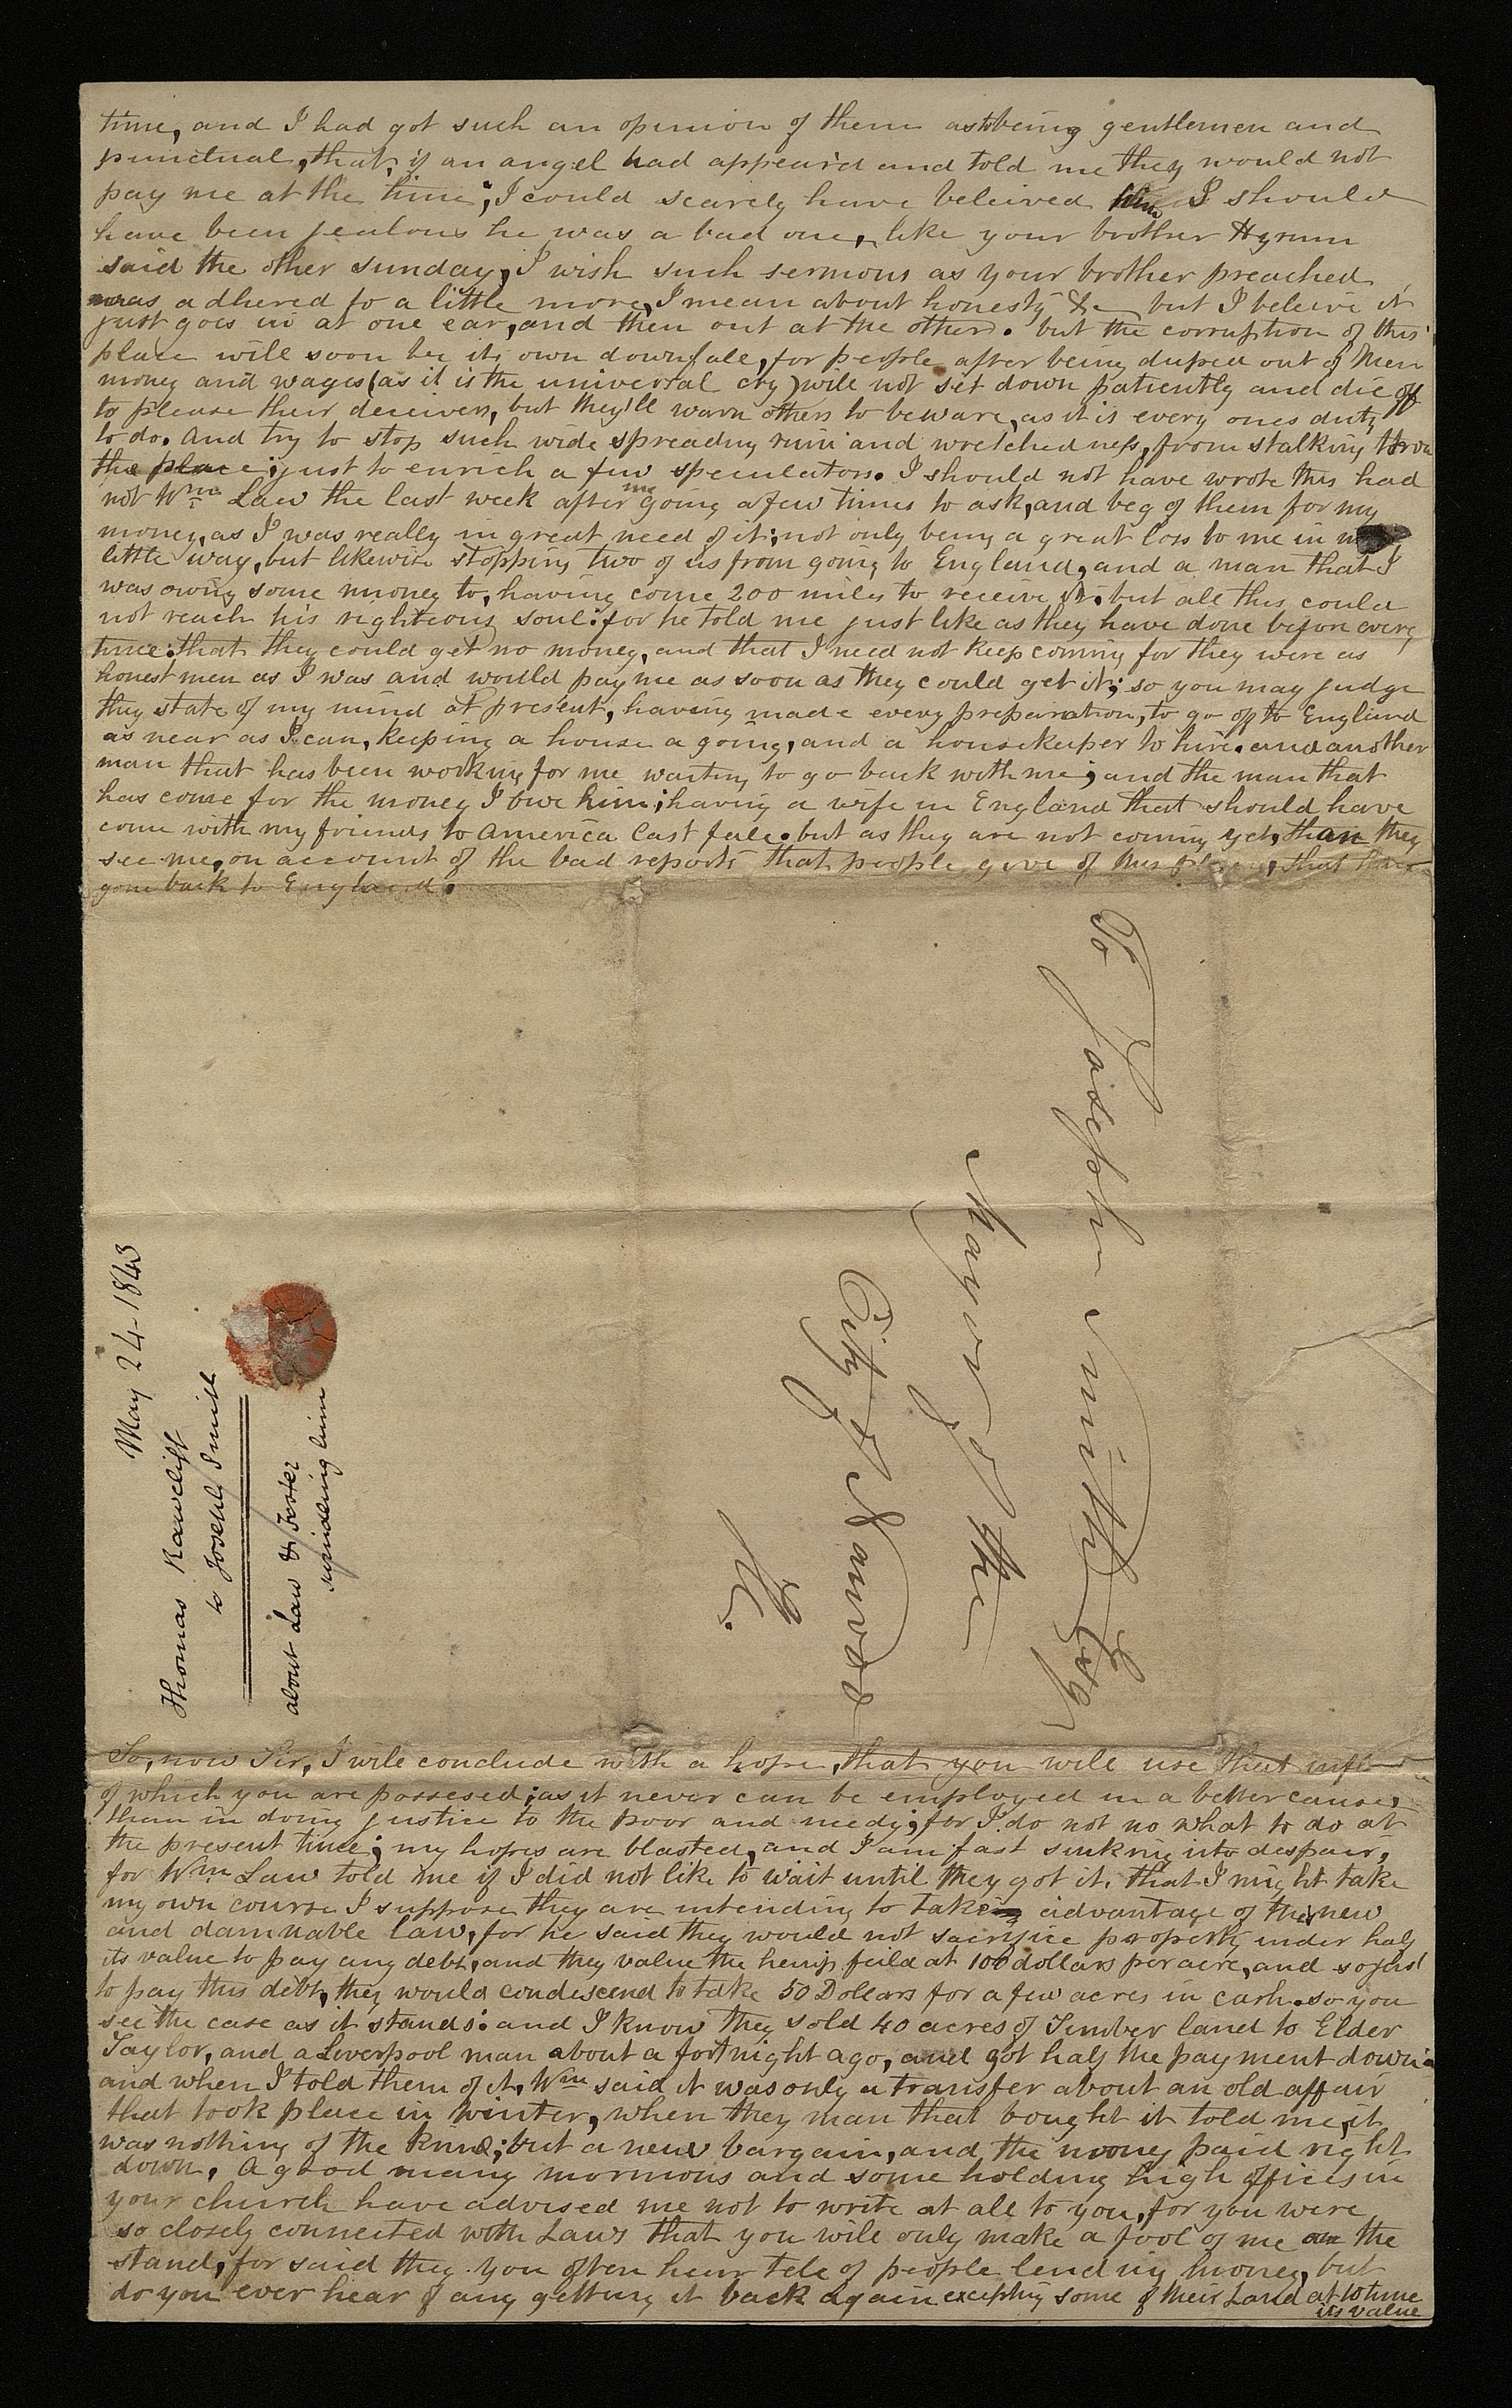 time, and I had got such an opinion of them as to being gentlemen and
punctual, that, if an angel had appeard and told me they would not
pay me at the time; I could scarely have beleived him I should
have been jealous he was a bad one, like your brother Hyrum
said the other sunday, I wish such sermons as your brother preached
was adhered to a little more, I mean about honesty &c but I beleive it
just goes in at one ear, and then out at the other. but the corruption of this
place will soon be its own downfall, for people after being duped out of their
money and wages (as it is the universal cry) will not sit down patiently and die off
to please their deceivers, but they'll warn others to beware, as it is every ones duty
to do. and try to stop such wide spreading ruin and wretchedness, from stalking throu
the place; just to enrich a few speculators. I should not have wrote this had
not Wm Law the last week after me going a few times to ask, and beg of them for my
money, as I was really in great need of it; not only being a great loss to me in my
little way, but likewise stopping two of us from going to England, and a man that I
was owing some money to, having come 200 miles to receive it. but all this could
not reach his righteous soul: for he told me just like as they have done before every
time: that they could get no money, and that I need not keep coming for they were as
honest men as I was and would pay me as soon as they could get it; so you may judge
they state of my mind at present, having made every preparation, to go off to England
as near as I can, keeping a house a going, and a housekeeper to hire. and another
man that has been working for me waiting to go back with me; and the man that
has come for the money I owe him; having a wife in England that should have
come with my friends to america last fall. but as they are not coming yet, than they
see me, on account of the bad reports that people give of this place, that have
gone back to England.
To Joseph Smith Esq
Mayor of the
City of Nauvoo
Ill.
May 24-1843
Thomas Rawclift
to Joseph Smith
about Law & Foster
swindling him
So, now Sir, I will conclude with a hope, that you will use that
of which you are possesed; as it never can be employed in a better cause,
than in doing justice to the poor and needy; for I do not no what to do at
the present time; my hopes are blasted, and I am fast sinking into despair,
for Wm Law told me if I did not like to wait until they got it, that I might take
my own course I suppose they are intending to take advantage of this new
and damnable law, for he said they would not sacrifice property under half
its value to pay any debt, and they value the hemp feild at 100 dollars per acre, and so just
to pay this debt, they would condescend to take 50 Dollars for a few acres in cash. so you
see the case as it stands: and I know they sold 40 acres of Timber land to Elder
Taylor, and a Liverpool man about a fortnight ago, and got half the payment down:
and when I told them of it, Wm said it was only a transfer about an old affair
that took place in winter, when they man that bought it told me, it
was nothing of the kind; but a new bargain, and the money paid right
down. A good many mormons and some holding high offices in
your church have advised me not to write at all to you, for you were
so closely connected with Laws that you will only make a fool of me on the
stand, for said they you often hear tell of people lending money, but
do you ever hear of any getting it back again excepting some of their Land at 10 time
its value